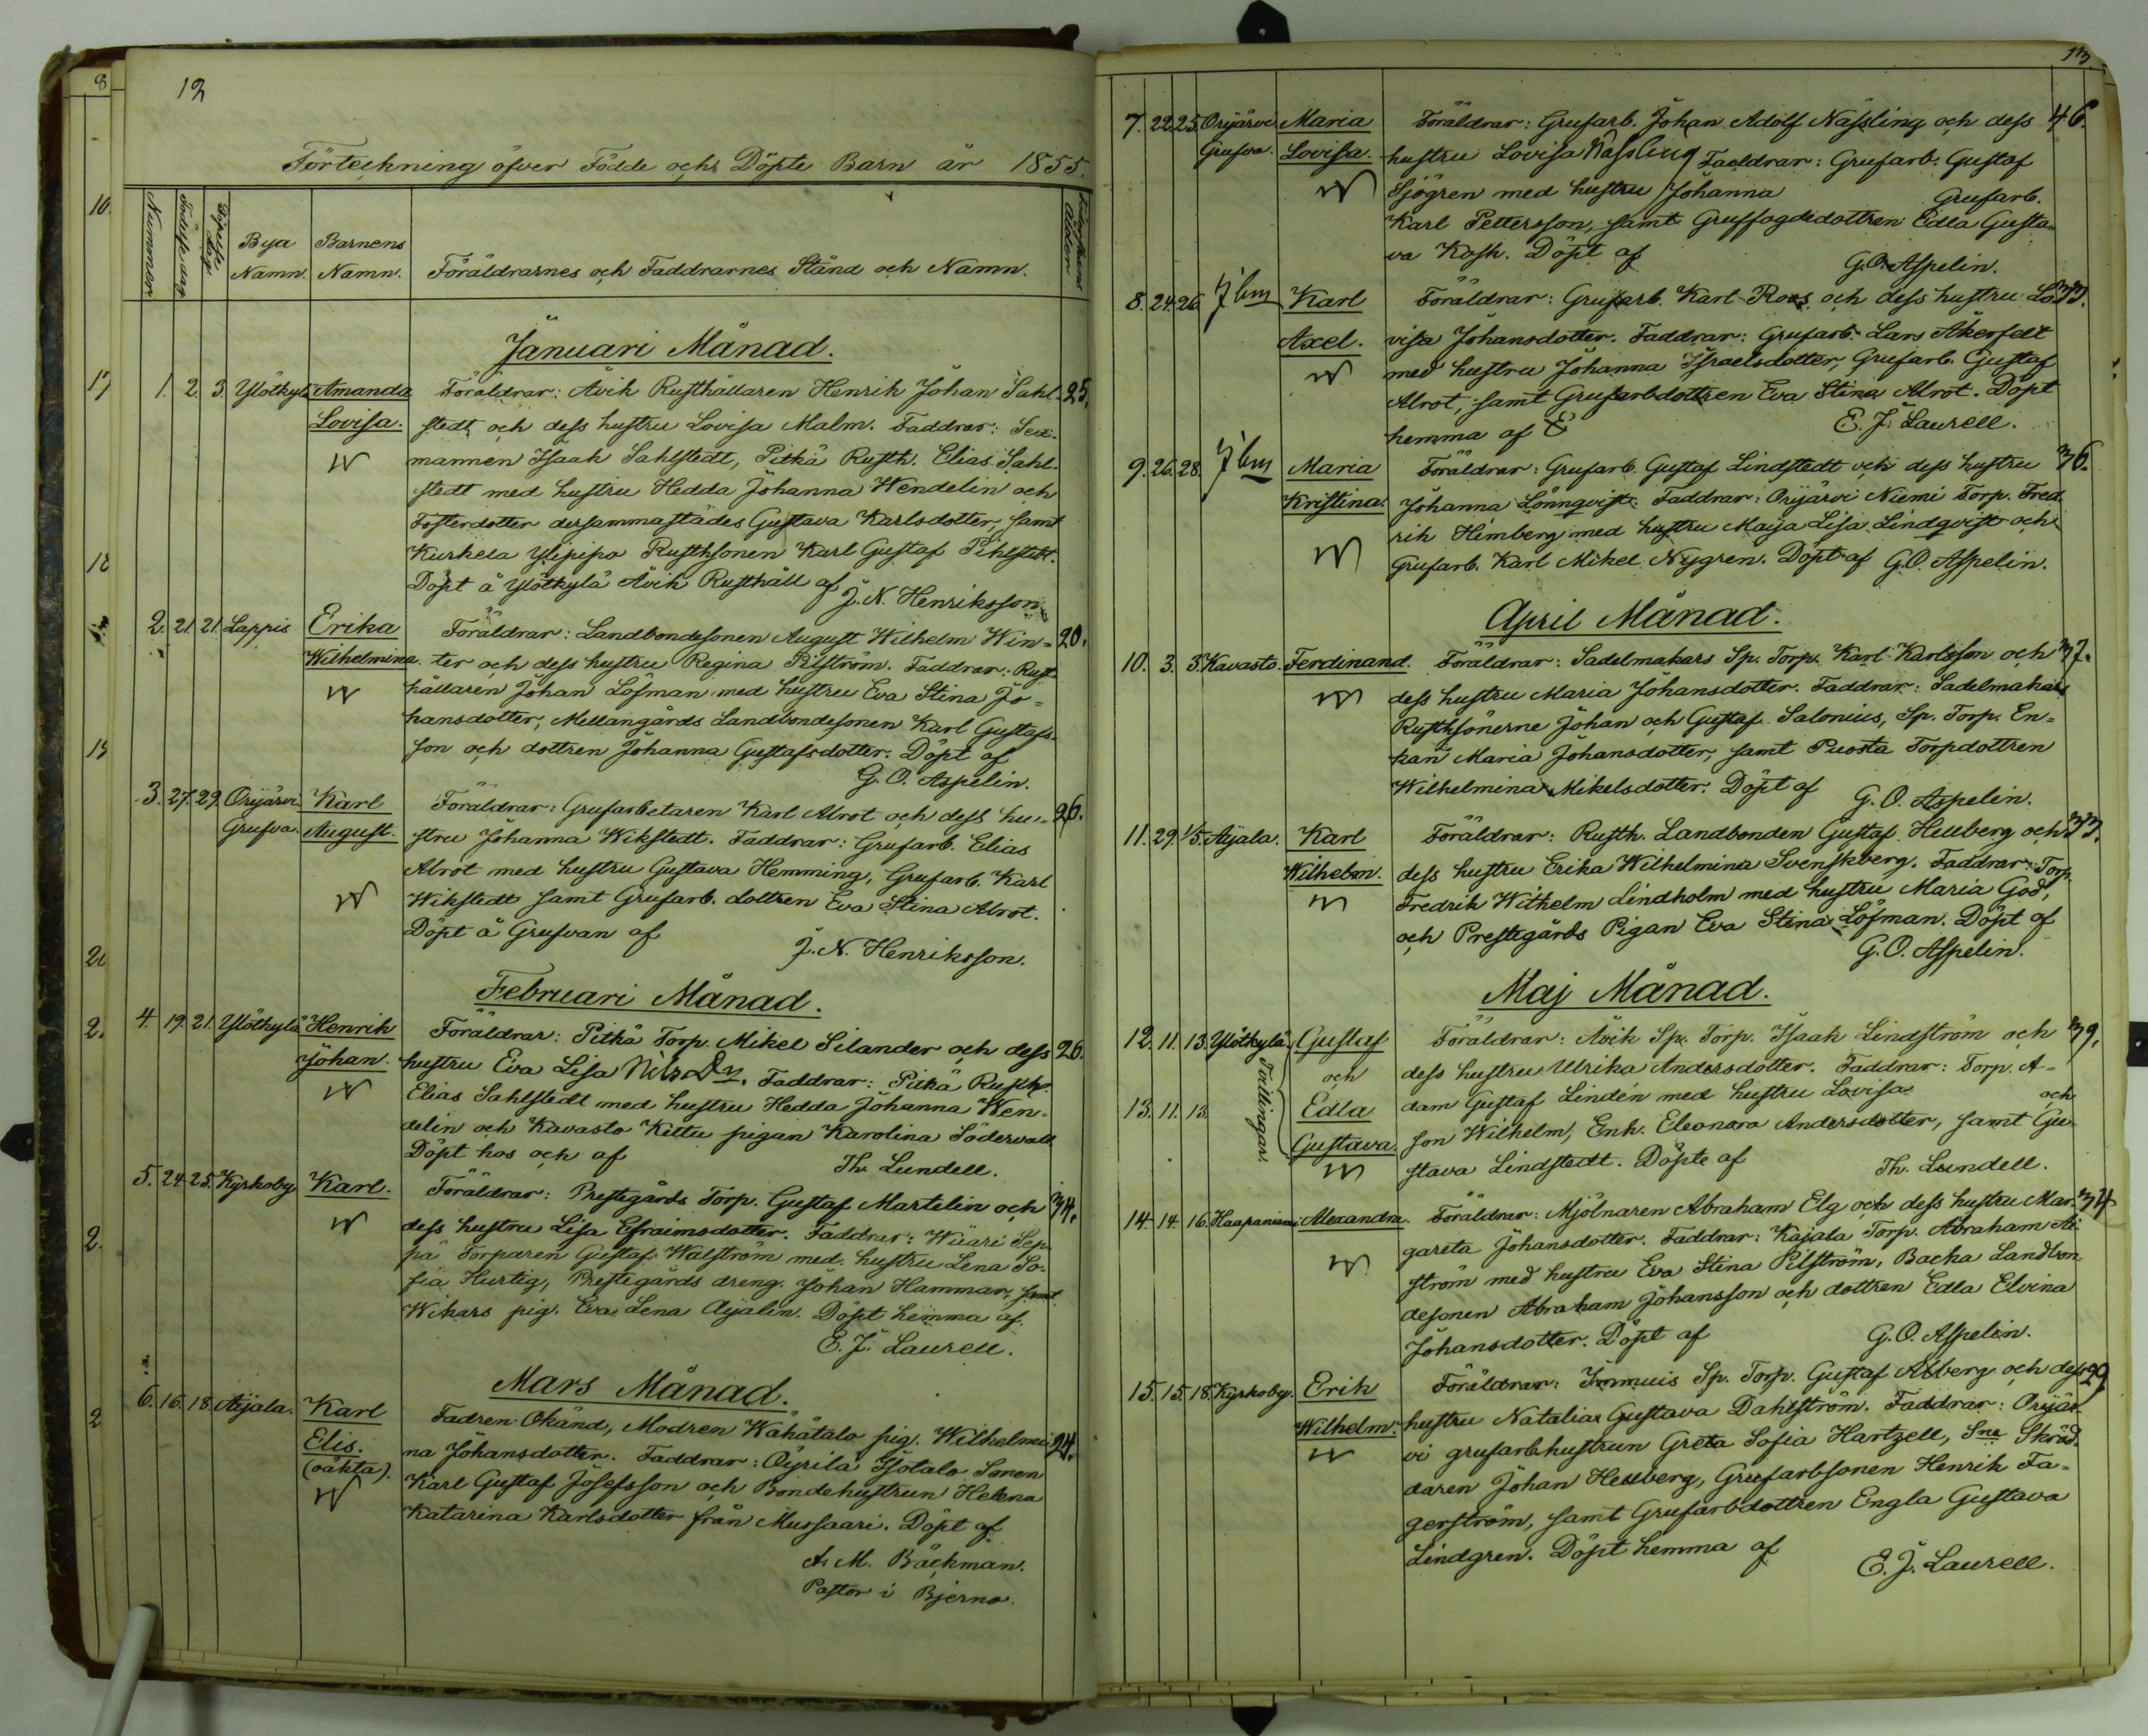 12
Förteckning öfver Födde och Döpte Barn år 1855.
Nummer
Födelse dag
Döpelse dag.
Bya Namn.
Barnens Namn.
Föräldrarnes och Faddrarnes Stånd och Namn.
Ålder
Januari Månad.
1. 2. 3. Ylötkylä Amanda Föräldrar: Åvik Rusthållaren Henrik Johan Sahl- 25.
Lovisa. stedt och dess hustru Lovisa Malm. Faddrar: Sex-
mannen Isaak Sahlstedt, Pitkä Rusth. Elias Sahl-
stedt med hustru Hedda Johanna Wendelin och
Fosterdotter dersammastädes Gustava Karlsdotter, samt
Kurkela Ylipipo Rusthsonen Karl Gustaf Pihlstedt.
Döpt å Ylötkylä Åvik Rusthåll af J. N. Henriksson.
2. 21. 21. Lappis Erika Föräldrar: Landbondesonen August Wilhelm Win- 20.
Wilhelmina. ter och dess hustru Regina Pilström. Faddrar: Rust-
hållaren Johan Löfman med hustru Eva Stina Jo-
hansdotter, Mellangårds Landbondesonen Karl Gustafs-
son och dottren Johanna Gustafsdotter. Döpt af
G. O. Aspelin.
3. 27. 29. Orijärvi Karl Föräldrar: Grufarbetaren Karl Alrot och dess hu- 26.
Grufva. August. stru Johanna Wikstedt. Faddrar: Grufarb. Elias
Alrot med hustru Gustava Hemming, Grufarb. Karl
Wikstedt samt Grufarb. dottren Eva Stina Alrot.
Döpt å Grufvan af J. N. Henriksson.
Februari Månad.
4. 19. 21. Ylötkylä Henrik Föräldrar: Pitkä Torp. Mikel Silander och dess 26.
Johan. hustru Eva Lisa Nils Dr. Faddrar: Pitkä Rusth.
Elias Sahlstedt med hustru Hedda Johanna Wen-
delin och Kavasto Kittu pigan Karolina Södervall
Döpt hos och af Th. Lundell.
5. 24. 25. Kyrkoby Karl. Föräldrar: Prestegårds Torp. Gustaf Martelin och 34.
dess hustru Lisa Efraimsdotter. Faddrar: Wiiari Sep-
pä Torparen Gustaf Walström med hustru Lena So-
fia Hurtig, Prestegårds dreng. Johan Hammar, samt
Wikars pig. Eva Lena Aijalin. Döpt hemma af
E. J. Laurell.
Mars Månad.
6. 16. 18. Aijala. Karl Fadren Okänd, Modren Wähätalo pig. Wilhelmi- 24.
Elis. na Johansdotter. Faddrar: Öyrilä Isotalo Sonen
(oäkta). Karl Gustaf Josefsson och Bondehustrun Helena
Katarina Karlsdotter från Mussaari. Döpt af
A. M. Bäckman.
Pastor i Bjerno.
7. 22. 25. Orijärvi Maria Föräldrar: Grufarb. Johan Adolf Nässling och dess 46.
Grufva. Lovisa. hustru Lovisa Nassling Faddrar: Grufarb. Gustaf
Sjögren med hustru Johanna Grufarb.
Karl Pettersson, samt Gruffogdedottren Edla Gusta-
va Kosk. Döpt af G. O. Aspelin.
8. 24. 26. Ibm Karl Föräldrar: Grufarb. Karl Roos och dess hustru Lo- 33.
Axel. visa Johansdotter. Faddrar: Grufarb. Lars Åkerfelt
med hustru Johanna Israelsdotter, Grufarb. Gustaf
Alrot, samt Grufarbdottren Eva Stina Alrot. Döpt
hemma af E. J. Laurell.
9. 26. 28. Ibm Maria Föräldrar: Grufarb. Gustaf Lindstedt och dess hustru 36.
Kristina. Johanna Lönnqvist. Faddrar: Orijärvi Niemi Torp. Fred-
rik Himberg med hustru Maija Lisa Lindqvist och
Grufarb. Karl Mikel Nygren. Döpt af G. O. Aspelin.
April Månad.
10. 3. 3. Kavasto. Ferdinand. Föräldrar: Sadelmakars Sp. Torp. Karl Karlsson och 37.
dess hustru Maria Johansdotter. Faddrar: Sadelmakars
Rusthsönerne Johan och Gustaf Salonius, Sp. Torp. En-
kan Maria Johansdotter, samt Puosta Torpdottren
Wilhelmina Mikelsdotter. Döpt af G. O. Aspelin.
11. 29. 1/5. Aijala. Karl Föräldrar: Rusth. Landbonden Gustaf Hellberg och 33.
Wilhelm. dess hustru Erika Wilhelmina Svenskberg. Faddrar: Torp.
Fredrik Wilhelm Lindholm med hustru Maria God,
och Prestegårds Pigan Eva Stina Löfman. Döpt af
G. O. Aspelin.
Maj Månad.
12. 11. 13. Ylötkylä Gustaf Föräldrar: Åvik Sp. Torp. Isaak Lindström och 39.
och dess hustru Ulrika Andersdotter. Faddrar: Torp. A-
13. 11. 13. Tvillingar. Edla dam Gustaf Lindén med hustru Lovisa och
Gustava. son Wilhelm, Enk. Eleonora Andersdotter, samt Gu-
stava Lindstedt. Döpte af Th. Lundell.
14. 14. 16. Haapaniemi Alexandra. Föräldrar: Mjölnaren Abraham Elg och dess hustru Mar- 34
gareta Johansdotter. Faddrar: Kajala Torp. Abraham Ali-
ström med hustru Eva Stina Pilström, Backa Landbon-
desonen Abraham Johansson och dottren Edla Elvina
Johansdotter. Döpt af G. O. Aspelin.
15. 15. 18. Kyrkoby. Erik Föräldrar: Immuis Sp. Torp. Gustaf Alberg och dess 29
Wilhelm. hustru Natalia Gustava Dahlström. Faddrar: Orijär-
vi grufarbhustrun Greta Sofia Hartzell, Sne Skräd-
daren Johan Hellberg, Grufarbsonen Henrik Fa-
gerström, samt Grufarbdottren Engla Gustava
Lindgren. Döpt hemma af E. J. Laurell.